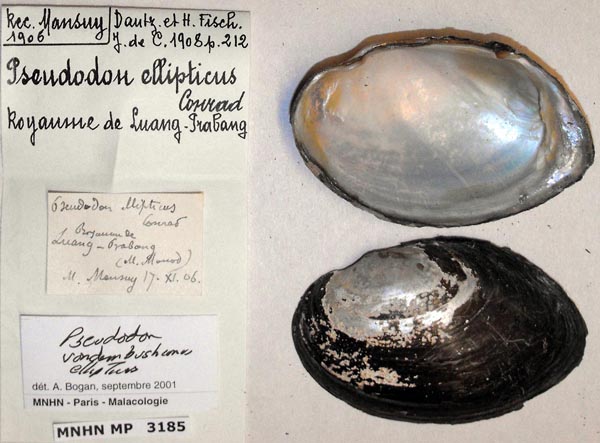 Rec. Mansuy
1906
Dautz. et H. Fisch.
J. de C. 1908 p. 212
Pseudodon ellipticus
Conrad
Royaume de Luang-Prabang
Pseudodon ellipticus
Conrad
Royaume de
Luang-Prabang
M. Mansuy 17. XI. 06.
Pseudodon
vondembuschianus
ellipticus
dét. A. Bogan, septembre 2001
MNHN - Paris - Malacologie
MNHN MP 3185